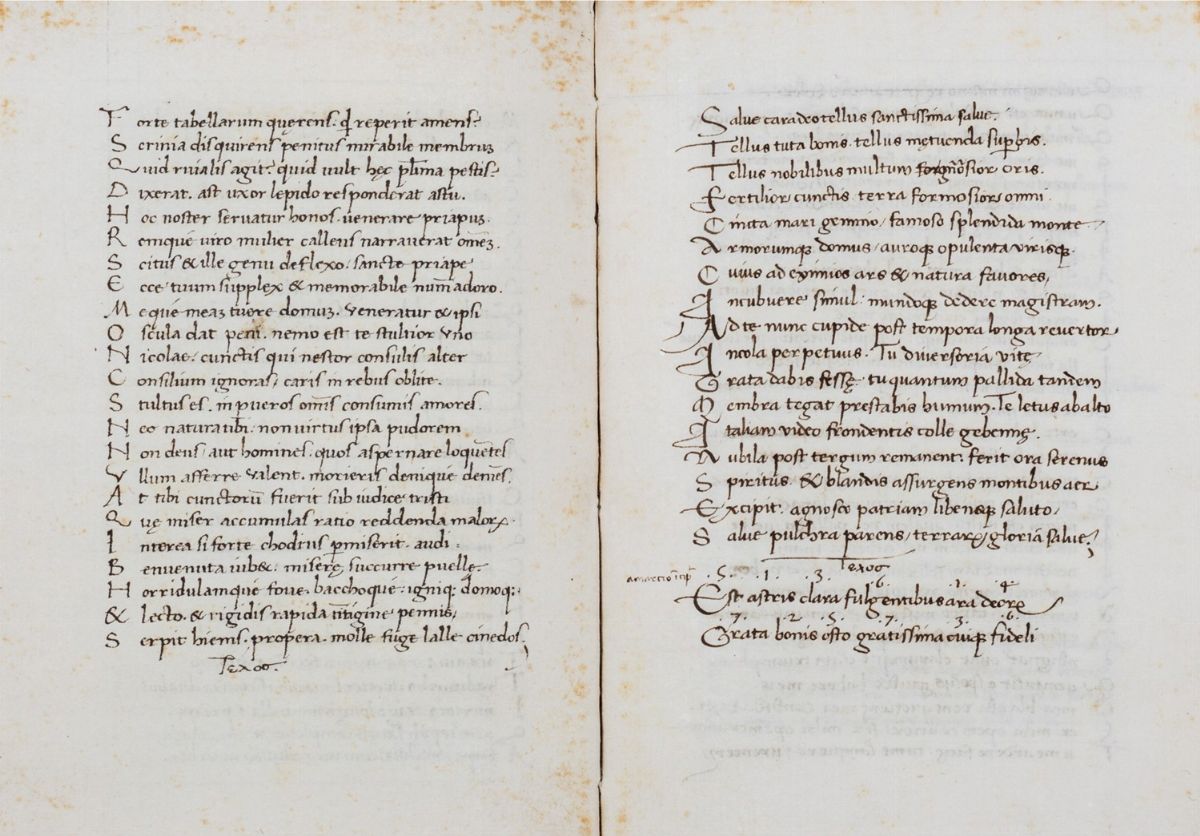 Forte tabellarum quęrens. qd reperit amens?
Scrinia disquirens penitus mirabile membrum
Quid rivalis agit? quid vult hęc plima pestis?
Dixerat. ast uxor lepido responderat astu.
Hec noster servatur honos. venerare priapum.
Remque viro mulier callens narraverat omnem.
Scitus & ille genu deflexo. sancte priape
Ecce tuum supplex & memorabile numen adoro.
Meque meam tuere domum. veneratur & ipsi
Oscula dat peni. nemo est te stultior uno
Nicolae. cunctis qui nestor consulis alter
Consilium ignoras, caris in rebus oblite.
Stultus es. in pueros omnis consumis amores.
Nec natura tibi. non virtus ipsa pudorem
Non deus, aut homines, quos aspernare loquentes
Vllum afferre valent. morieris denique demens.
At tibi cunctorū fuerit sub iudice tristi
Quę miser accumulas ratio reddenda malorꝝ.
Interea si forte chodrus pmiserit. audi.
Benvenuta iubet. miserę succurre puellę
Horridulamque fove. baccoque. igniq; domoq;.
& lecto. & rigidis rapida vertigine pennis,
Serpit hiems. propera. molle fuge lalle cinedos.
Τελος.
Salve cara deo tellus sanctissima salve.
Tellus tuta bonis. tellus metuenda supbis.
Tellus nobilibus multum gnosior oris.
Fertilior cunctis. terra formosior omni.
Cincta mari gemino, famoso splendida monte
Armorumq domus, auroq opulenta virisq.
Cuius ad eximios ars & natura favores,
Incubuere simul. mundoq dedere magistram.
Ad te nunc cupide post tempora longa revertor
Incola perpetuus. Tu diversoria vitę
Grata dabis fessę. tu quantum pallida tandem
Membra tegat prestabis humum. Te letus ab alto
Italiam video frondentis colle gebennę.
Nubila post tergum remanent. ferit ora serenus
Spiritus. & blandis assurgens montibus aer
Excipit. agnosco patriam libensq saluto,
Salve pulchra parens, terrarꝝ, gloria salve.
Τελος
.5. .1. .3. .6. .1. .4.
Est astris clara fulgentibus ara deorꝝ
.7. .2. .5. .7. .3. .6.
Grata bonis osto gratissima cuiq fideli